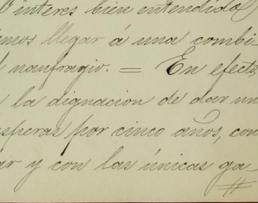 interes bien entendida
emos llegar á una combi
l naufragio. = En efecto
la dignacion de dar un
esperas por cinco años, con
ar y con las únicas ga